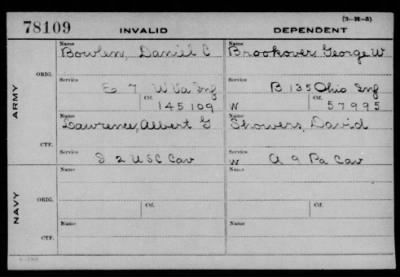 (3-H-3)
78109 INVALID DEPENDENT
Name Name
Bowlen, Daniel C Brookover, George W
ORIG. Service Service
E 7 W Va Inf B 135 Ohio Inf
Ctf. Ctf.
145109 W 57995
ARMY
Name Name
Lawrence, Albert G Showers, David
CTF. Service Service
S 2 USC Cav W A 9 Pa Cav
Name Name
ORIG. Service Ctf. Service Ctf.
NAVY
Name Name
CTF.